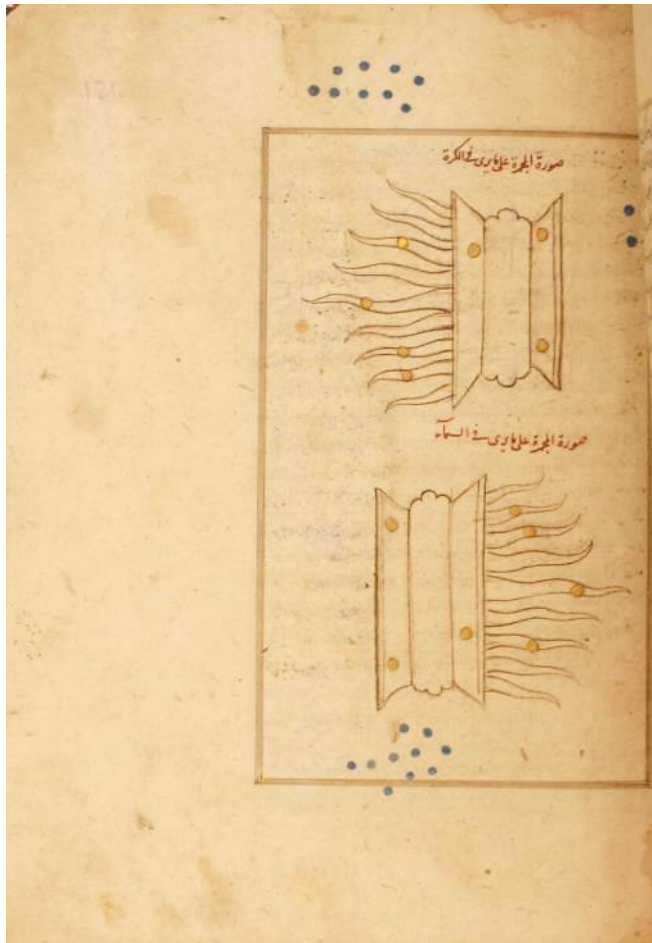 صورة المجمرة على ما يرى في الكرة
صورة المجمرة على ما يرى في السماء